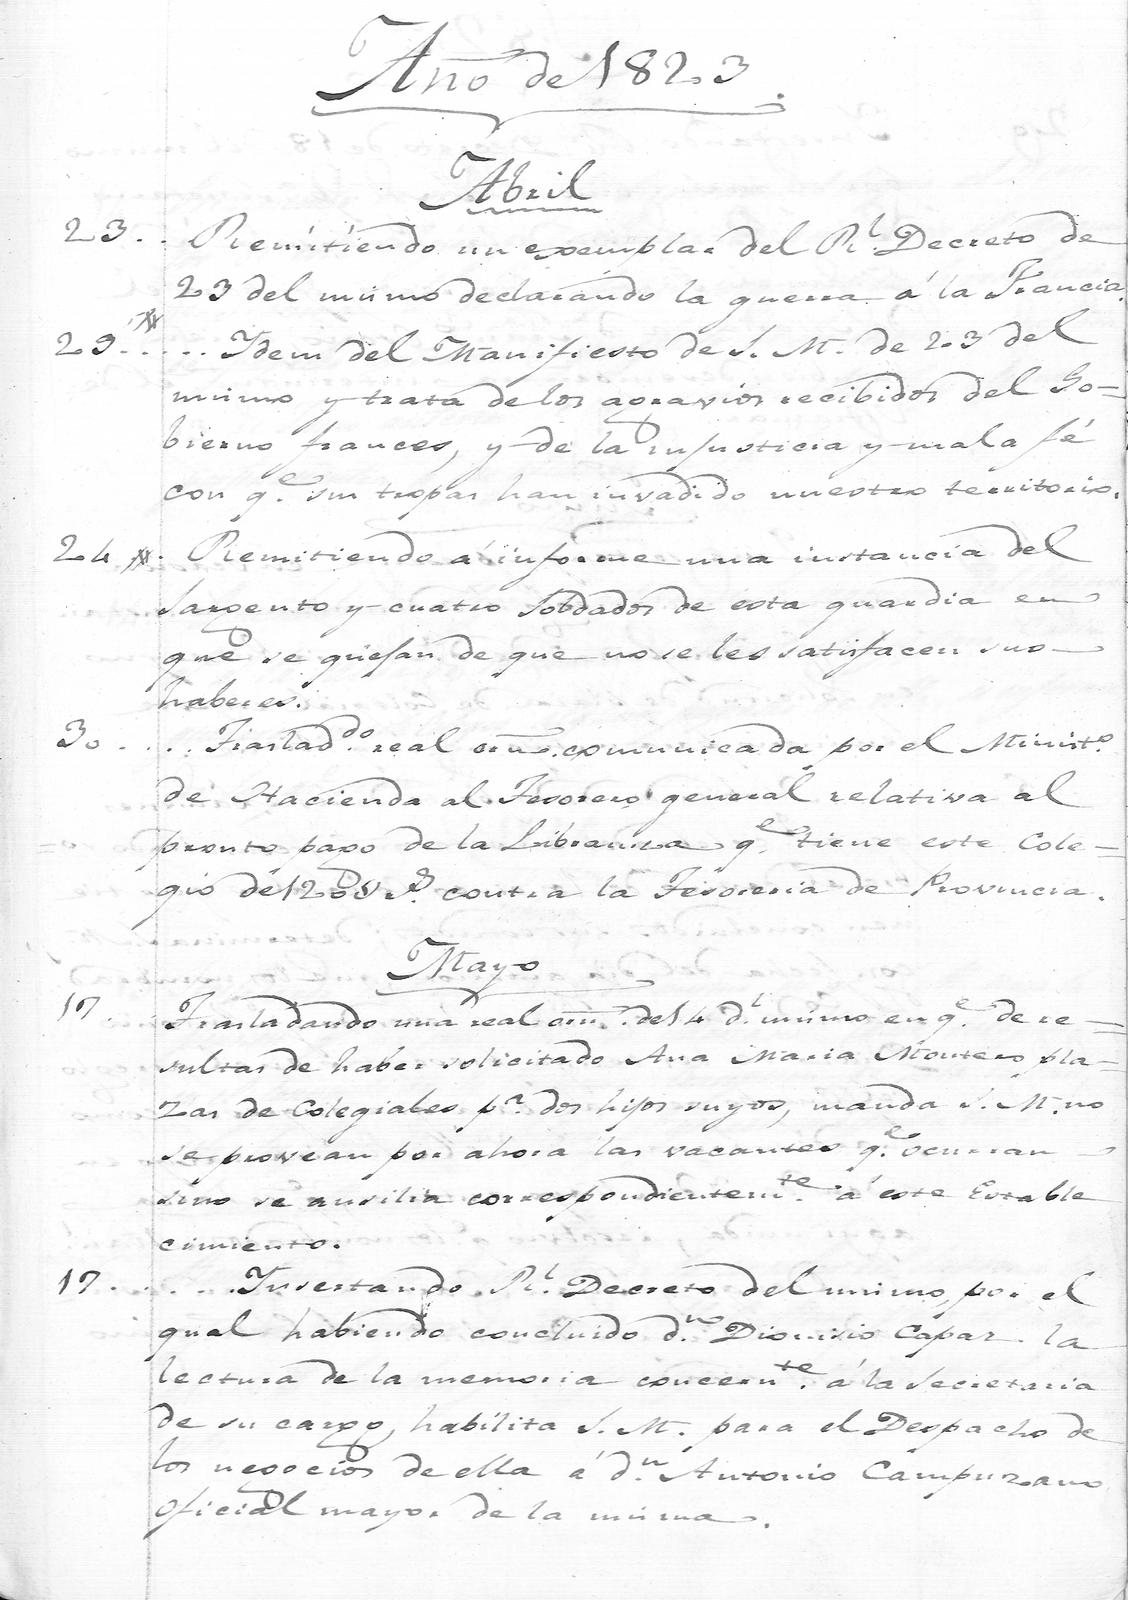 Año de 1823.
Abril
23.. Remitiendo un exemplar del Rl. Decreto de
23 del mismo declarando la guerra á la Francia.
29..... Ydem del Manifiesto de S. M. de 23 del
mismo y trata de los agravios recibidos del Go=
bierno frances, y de la injusticia y mala fé
con qe. sus tropas han invadido nuestro territorio.
24. Remitiendo á informe una instancia del
sargento y cuatro soldados de esta guardia en
que se quejan de que no se les satisfacen sus
haberes.
30.... Traslado. real orn. comunicada por el Ministo.
de Hacienda al Tesorero general relativa al
pronto pago de la Libranza qe. tiene este Cole=
gio de contra la Tesoreria de Provincia.
Mayo
17. Trasladando una real orn. de 14 dl. mismo en qe. de re=
sultas de haber solicitado Ana Maria Montero pla=
zas de Colegiales pa. dos hijos suyos, manda S. M. no
se provean por ahora las vacantes qe. ocurran
sino se ausilia correspondientemte. á este Estable
cimiento.
17...... Ynsertando Rl. Decreto del mismo, por el
qual habiendo concluido dn. Dionisio Capaz la
lectura de la memoria concernte. á la Secretaria
de su cargo, habilita S. M. para el Despacho de
los negocios de ella á dn. Antonio Campuzano
oficial mayor de la misma.